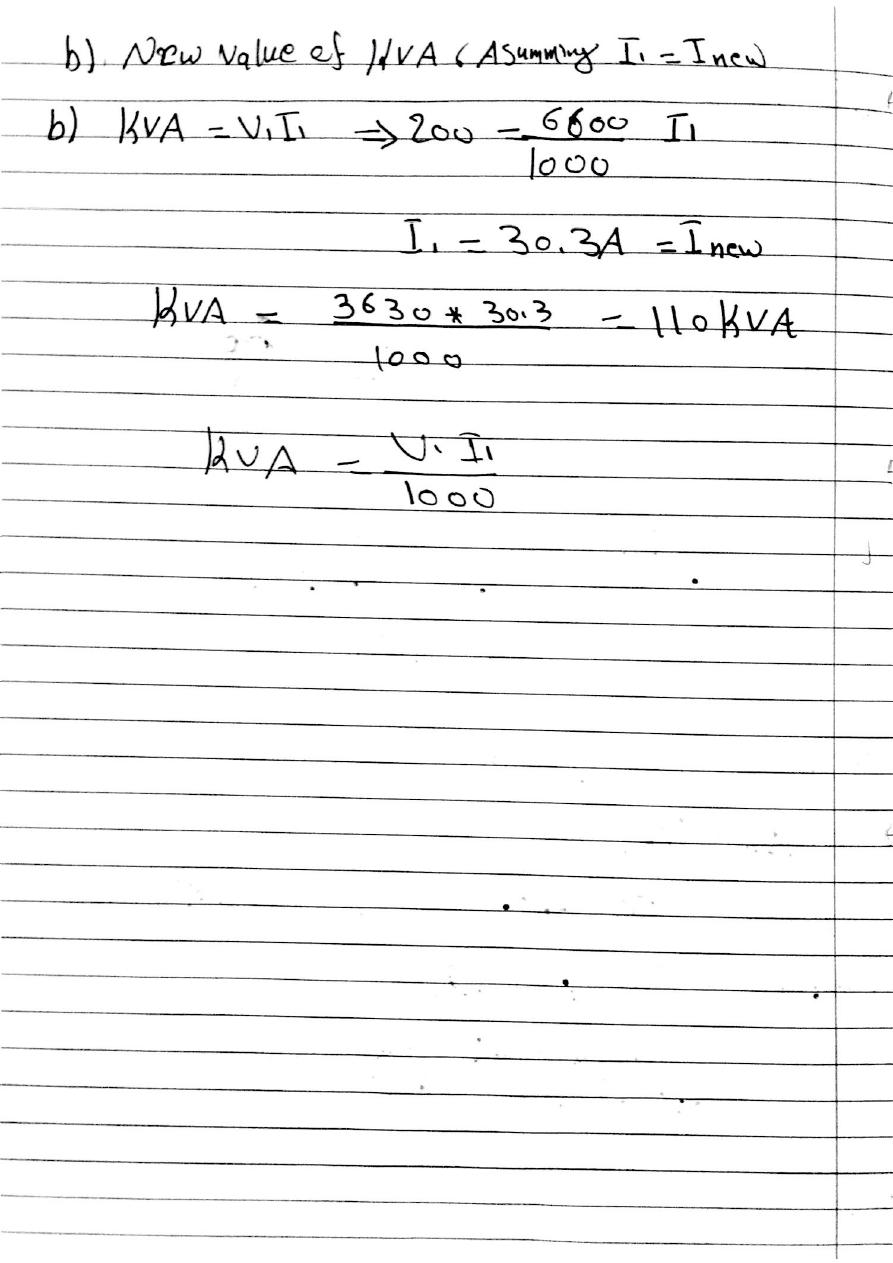 b). New value of KVA (Asumming I₁ = Inew
b) KVA = V₁I₁ ⇒ 200 = 6600/1000 I₁
I₁ = 30.3A = Inew
KVA = 3630 * 30.3/1000 = 110KVA
KVA = V₁ I₁/1000